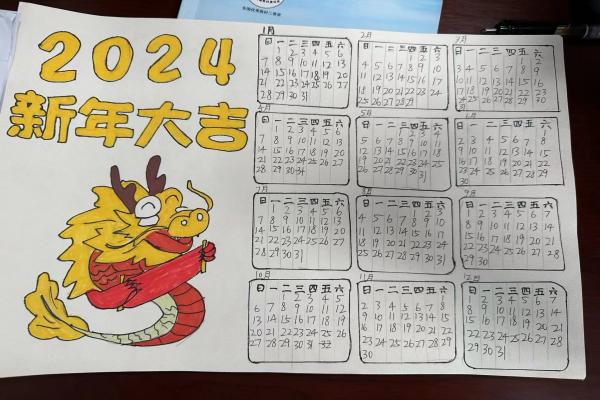 全国优秀教材二等奖
2024
新年大吉
1月
日 一 二 三 四 五 六
1 2 3 4 5 6
7 8 9 10 11 12 13
14 15 16 17 18 19 20
21 22 23 24 25 26 27
28 29 30 31
2月
日 一 二 三 四 五 六
1 2 3
4 5 6 7 8 9 10
11 12 13 14 15 16 17
18 19 20 21 22 23 24
25 26 27 28 29
3月
日 一 二 三 四 五 六
1 2
3 4 5 6 7 8 9
10 11 12 13 14 15 16
17 18 19 20 21 22 23
24 25 26 27 28 29 30
31
4月
日 一 二 三 四 五 六
1 2 3 4 5 6
7 8 9 10 11 12 13
14 15 16 17 18 19 20
21 22 23 24 25 26 27
28 29 30
5月
日 一 二 三 四 五 六
1 2 3 4
5 6 7 8 9 10 11
12 13 14 15 16 17 18
19 20 21 22 23 24 25
26 27 28 29 30 31
6月
日 一 二 三 四 五 六
1
2 3 4 5 6 7 8
9 10 11 12 13 14 15
16 17 18 19 20 21 22
23 24 25 26 27 28 29
30
7月
日 一 二 三 四 五 六
1 2 3 4 5 6
7 8 9 10 11 12 13
14 15 16 17 18 19 20
21 22 23 24 25 26 27
28 29 30 31
8月
日 一 二 三 四 五 六
1 2 3
4 5 6 7 8 9 10
11 12 13 14 15 16 17
18 19 20 21 22 23 24
25 26 27 28 29 30 31
9月
日 一 二 三 四 五 六
1 2 3 4 5 6 7
8 9 10 11 12 13 14
15 16 17 18 19 20 21
22 23 24 25 26 27 28
29 30
10月
日 一 二 三 四 五 六
1 2 3 4 5
6 7 8 9 10 11 12
13 14 15 16 17 18 19
20 21 22 23 24 25 26
27 28 29 30 31 32
11月
日 一 二 三 四 五 六
1
2 3 4 5 6 7 8
9 10 11 12 13 14 15
16 17 18 19 20 21 22
23 24 25 26 27 28 29
30
12月
日 一 二 三 四 五 六
1 2 3 4 5 6 7
8 9 10 11 12 13 14
15 16 17 18 19 20 21
22 23 24 25 26 27 28
29 30 31